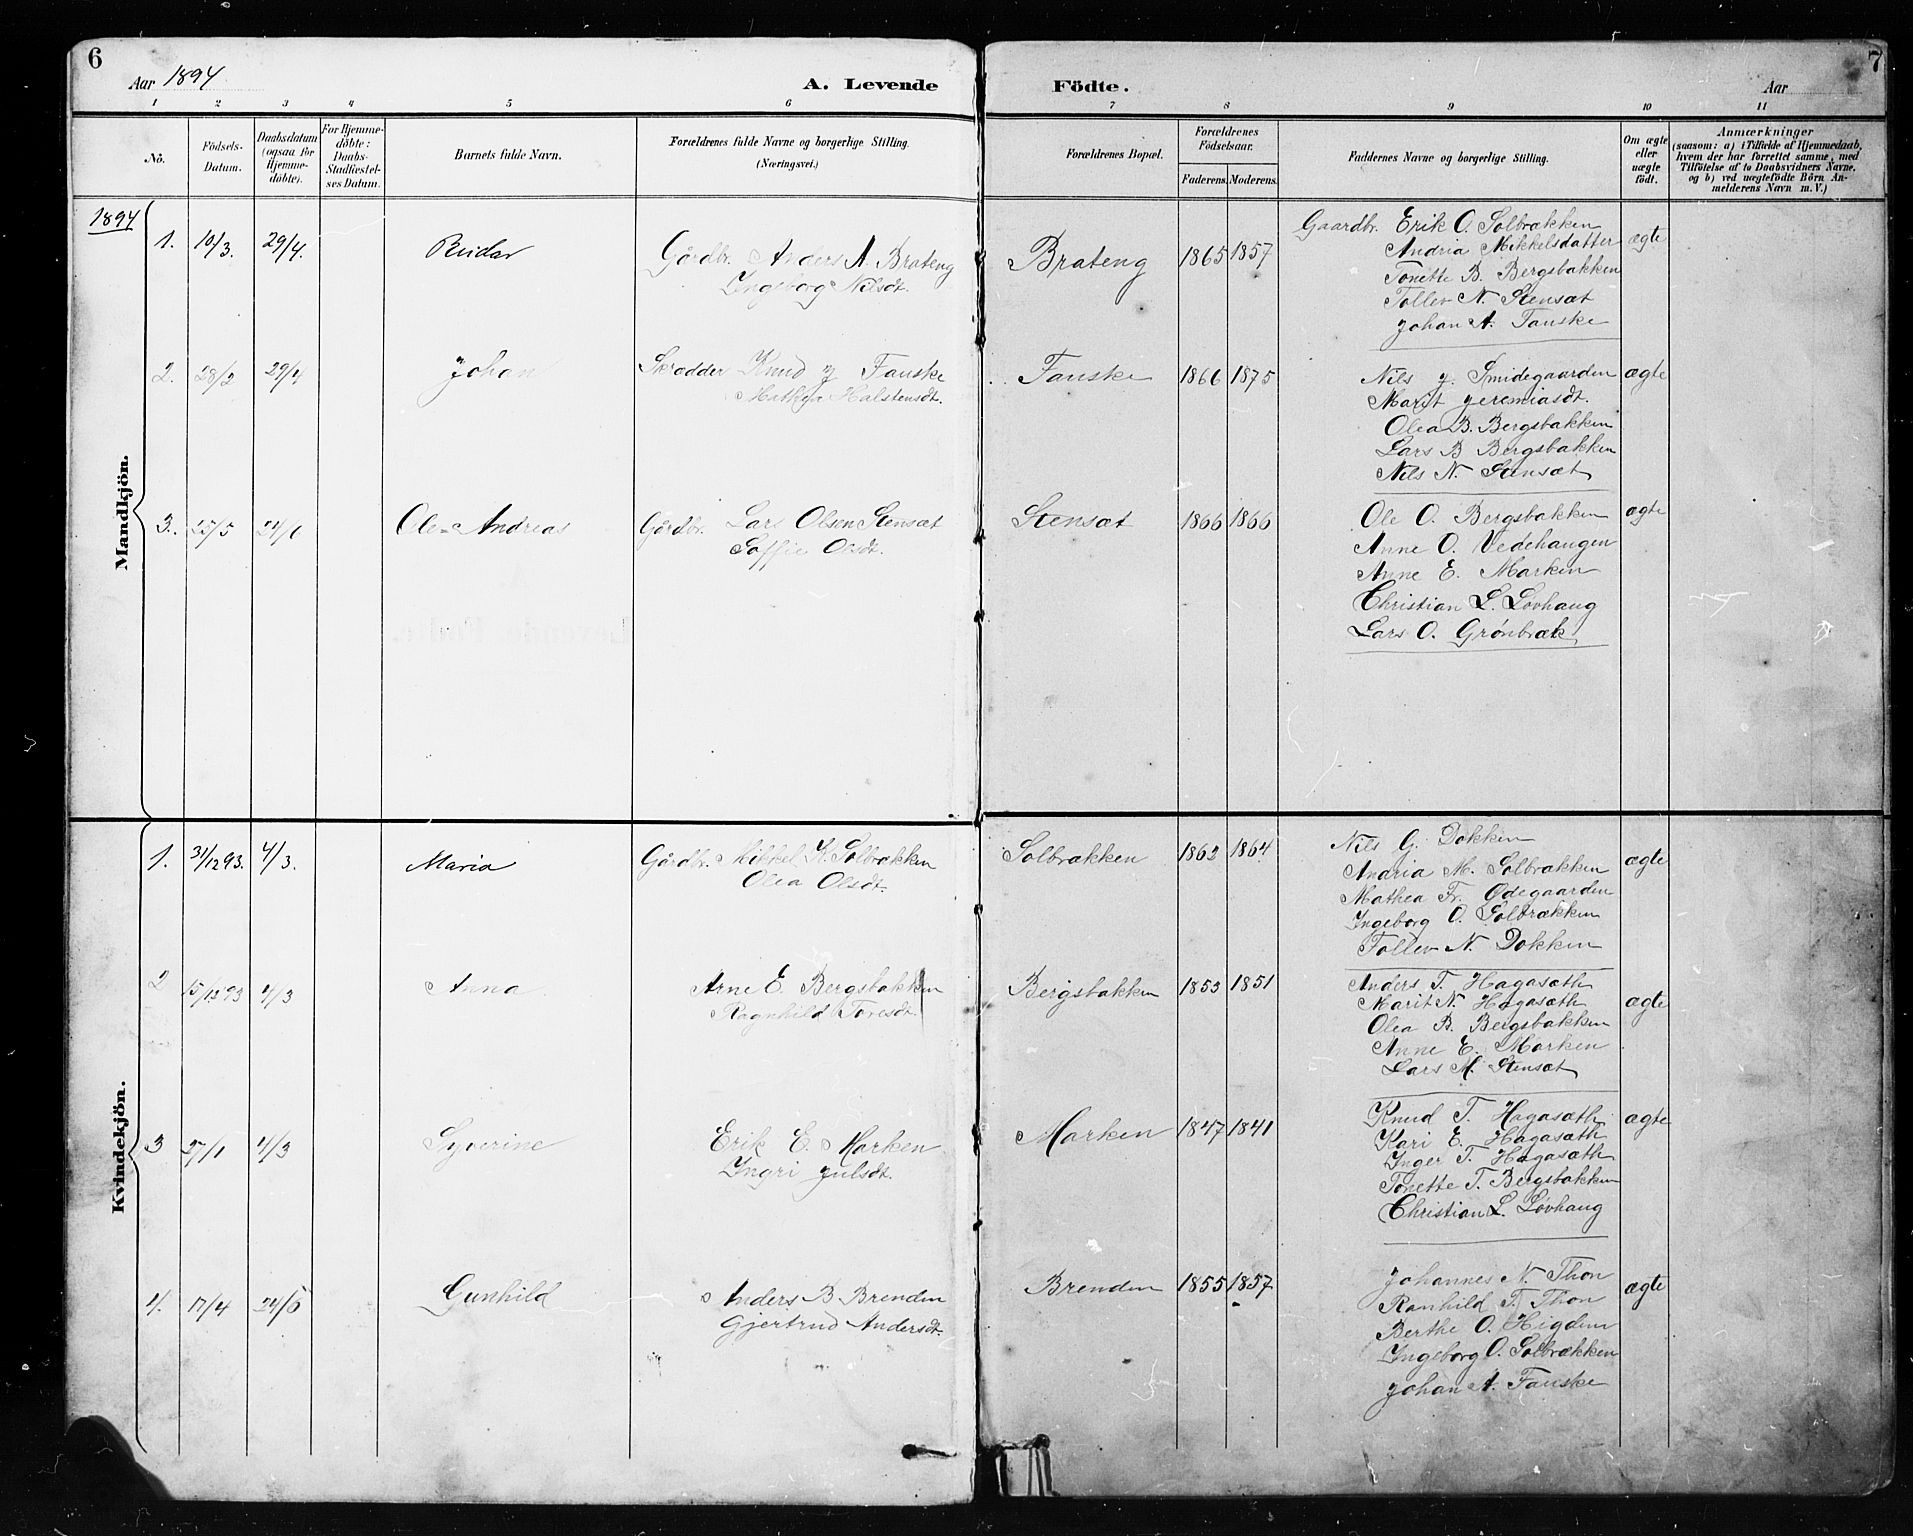 6
Aar 1894
A. Levende
Födte.
Aar
7
1 2 3 4 5 6 7 8 9 10 11
No.
Födsels-Datum.
Daabsdatum (ogsaa for Hjemmedöbte).
For Hjemmedöbte: Daabs-Stadfæstelses Datum.
Barnets fulde Navn.
Forældrenes fulde Navne og borgerlige Stilling. (Næringsvei.)
Forældrenes Bopæl.
Forældrenes Födselsaar.
Faderens. Moderens.
Faddernes Navne og borgerlige Stilling.
Om ægte eller uægte födt.
Anmærkninger
(saasom: a) i Tilfælde af Hjemmedaab, hvem der har forrettet samme, med Tilföielse af to Daabsvidners Navne, og b) ved uægtefödte Börn Anmelderens Navn m. V.)
1894
Mandkjön.
1. 10/3. 29/4. Reidar Gårdbr. Anders A Brateng Brateng 1865 1857 Gaardbr. Erik O. Solbrækken ægte
Ingeborg Nilsdt. Andria Mikkelsdatter
Tonette B. Bergsbakken
Tollev N. Stensæt
Johan A. Fauske
2. 28/2 29/4 Johan Skrædder Knud J Fauske Fauske 1866 1875 Nils J. Smidegaarden ægte
Mathea Halstensdt. Marit Jeremiasdt.
Olea B. Bergsbakken
Lars B Bergsbakken
Nils N. Stensæt
3. 25/5 24/6 Ole Andreas Gårdbr. Lars Olsen Stensæt Stensæt 1866 1866 Ole O. Bergsbakken ægte
Soffie Olsdt. Anne O. Vedehaugen
Anne E. Marken
Christian L. Lövhaug
Lars O. Grönbræk
Kvindekjön.
1. 31/12 93. 4/3. Maria Gårdbr. Mikkel K. Solbrækken Solbrækken 1862 1864 Nils G. Dokken ægte
Olea Olsdt. Andria M. Solbrækken
Mathea Fr. Ødegaarden
Ingeborg O. Solbrækken
Tollev N. Dokken
2 15/12 93 4/3 Anna Arne E. Bergsbakken Bergsbakken 1853 1851 Anders T. Hagasæth ægte
Ragnhild Toresdt. Marit N. Hagasæth
Olea B. Bergsbakken
Anne E. Marken
Lars M. Stensæt
3 27/1 4/3 Syverine Erik E. Marken Marken 1847 1841 Knud T. Hagasæth ægte
Ingri Julsdt. Kari E. Hagasæth
Inger T. Hagasæth
Tonette T. Bergsbakken
Christian L. Lövhaug
4. 17/4 24/6 Gunhild Anders B Brenden Brenden 1855 1857 Johannes N. Thon ægte
Gjertrud Andersdt. Ranhild T. Thon
Berthe O. Higden
Ingeborg O. Solbrækken
Johan A. Fauske